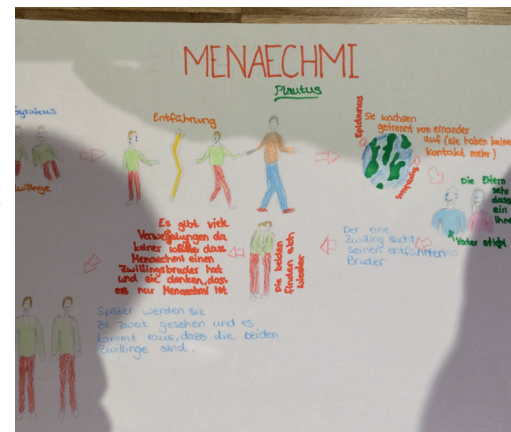 MENAECHMI
Plautus
Syrakus
Zwillinge
Entführung
Epidamnus
Syrakus
Sie wachsen
getrennt von einander
auf (sie haben keinen
Kontakt mehr)
Die Eltern
sehr
dass
ein
ihre
Vater stirbt
Der eine
Zwilling sucht
seinen entführten
Bruder
Die beiden
finden sich
wieder
Es gibt viele
Verwechslungen da
keiner wusste dass
Menaechmi einen
Zwillingsbruder hat
und sie denken, dass
es nur Menaechmi ist
Später werden sie
zu zweit gesehen und es
kommt raus, dass die beiden
Zwillinge sind.